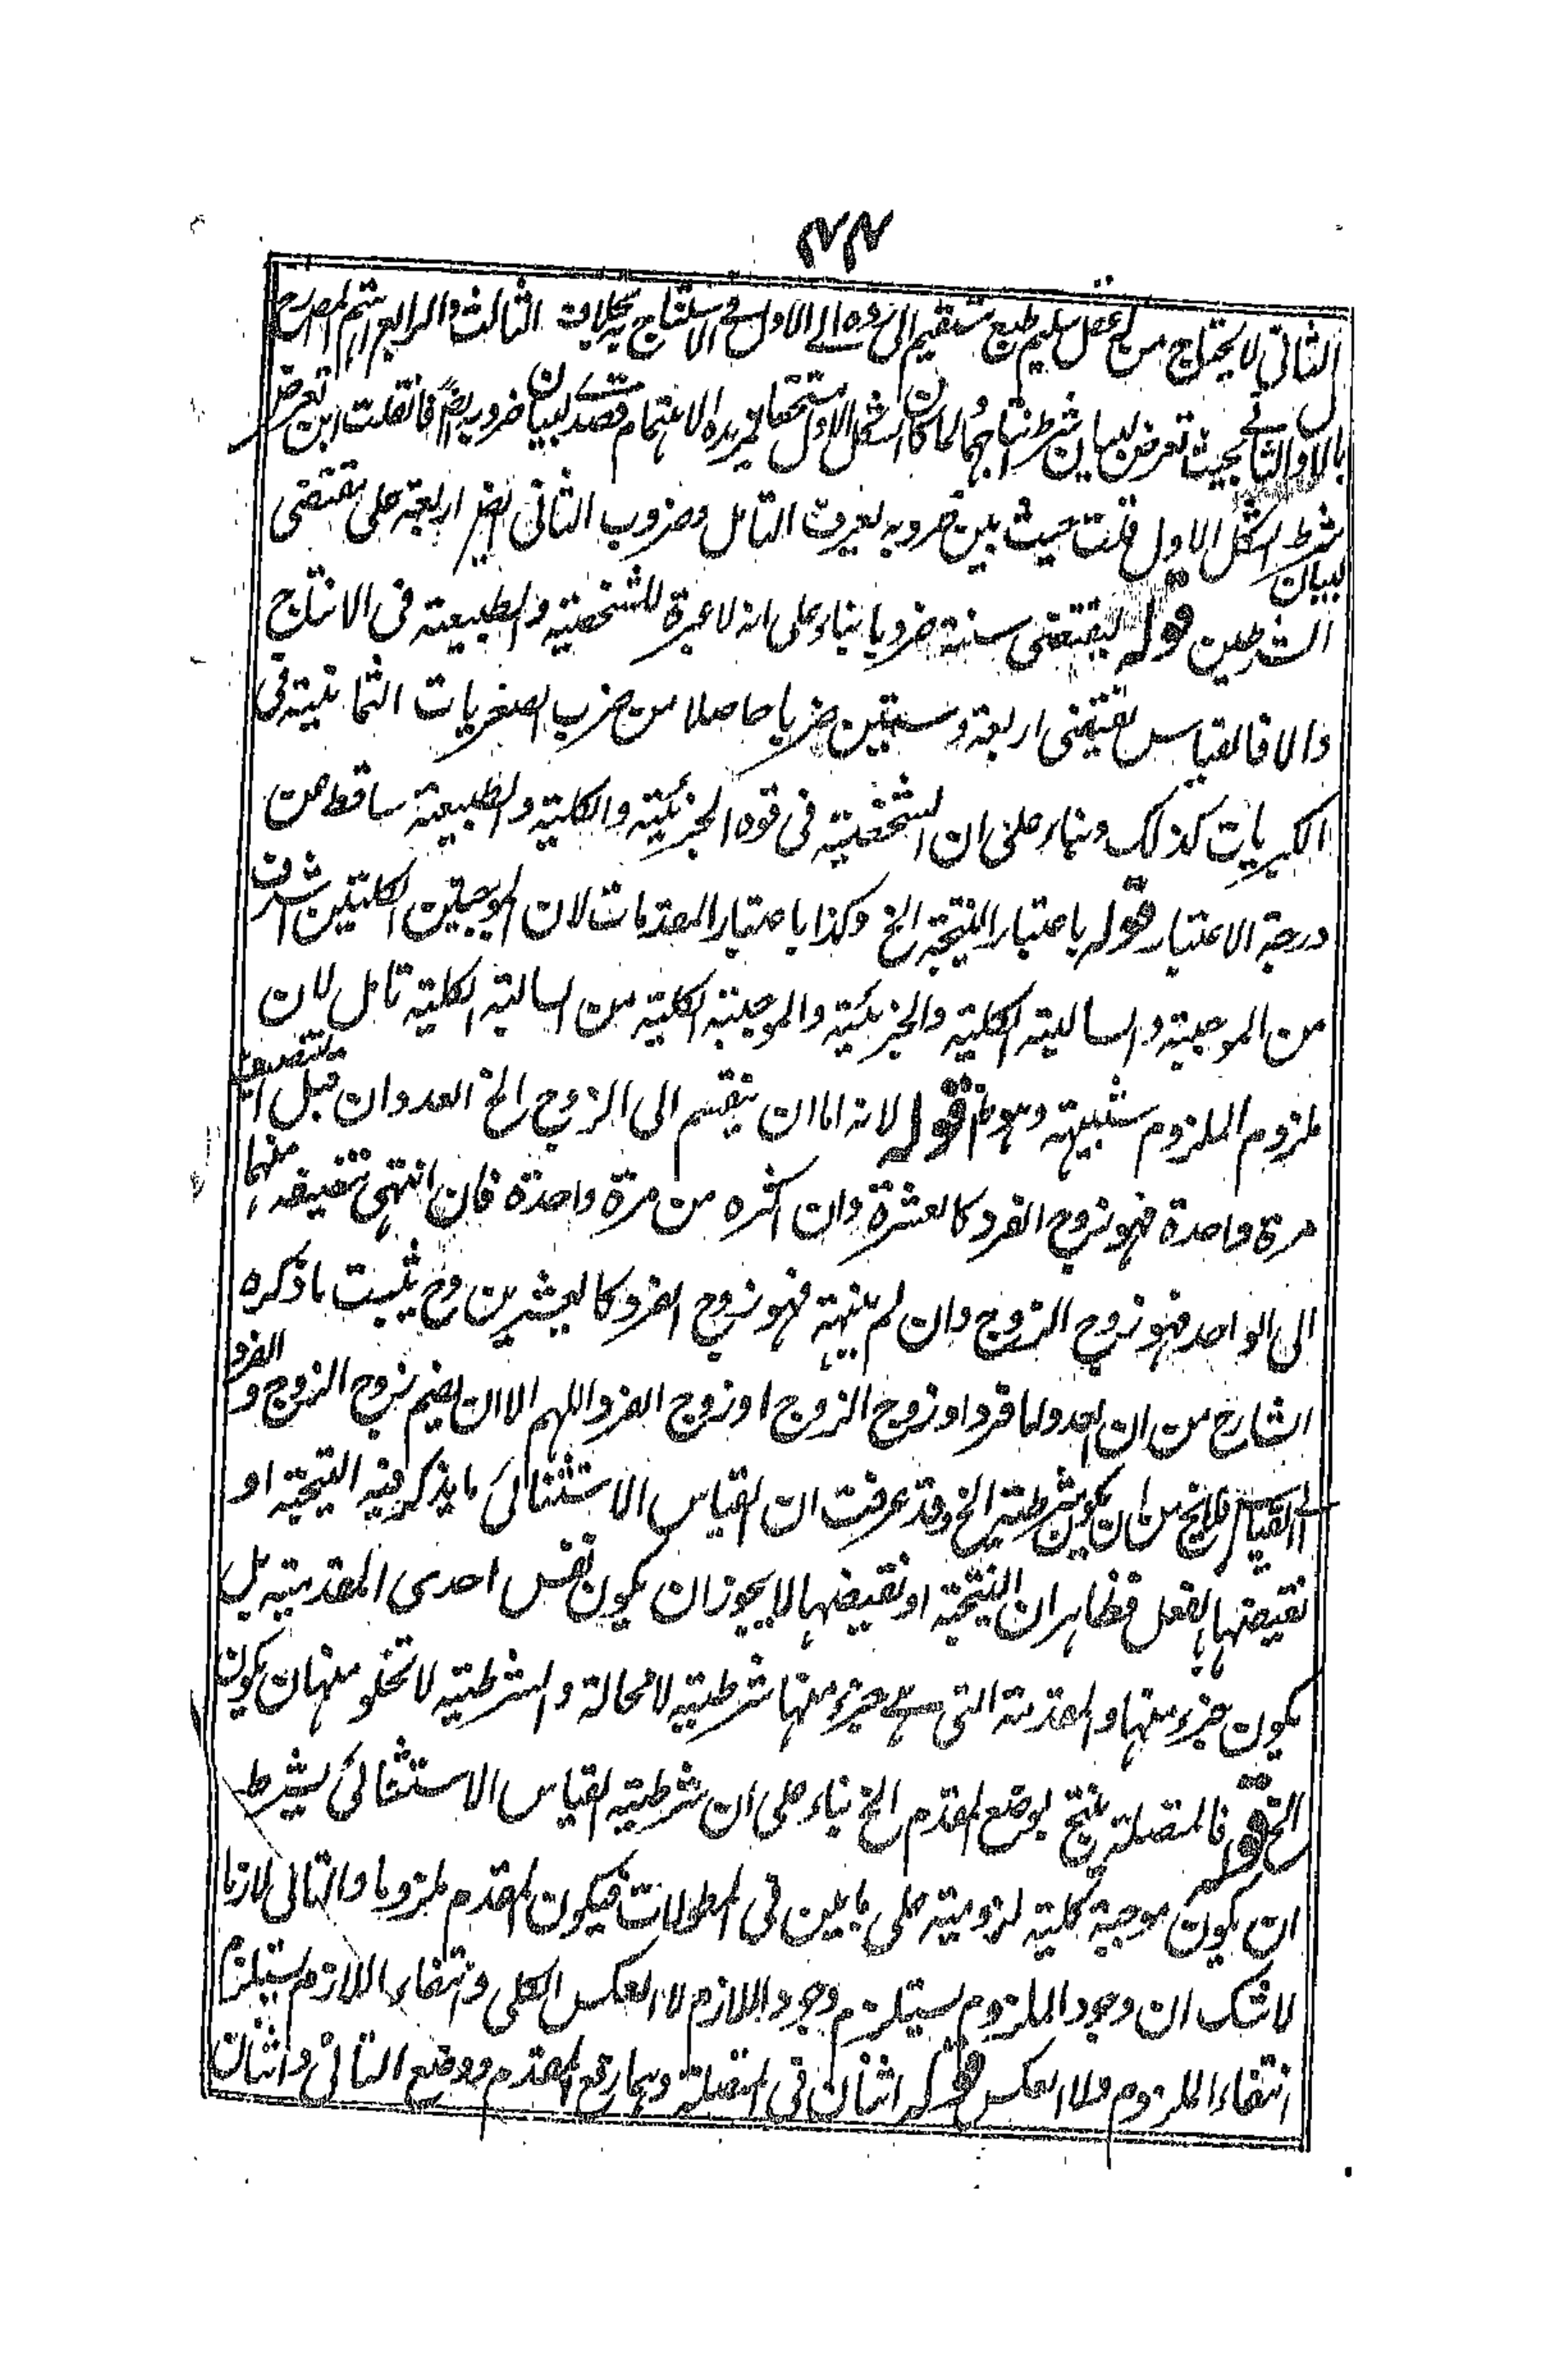 ٢٢
الثاني لا يحتاج من له عقل سليم وطبع مستقيم الى رده الى الاول في الاستنتاج به بخلاف الثالث والرابع اهتم المصرح
بالاول والثاني بحيث تعرض لبيان شرط انتاجهما ولما كان الشكل الاول مستحقا لمزيد الاهتمام قصد لبيان ضروبه ايضا فان قلت اين تعرض لبيان
شرط الشكل الاول قلت حيث بين ضروبه يعرف بالتامل وضروب الثاني ايضا اربعة على مقتضى
الشرطين قوله يقتضي ستة ضروبا بناء على انه لا عبرة للشخصية والطبيعية في الانتاج
والا فالقياس يقتضي اربعة وستين ضربا حاصلا من ضرب الصغريات الثمانية في
الكبريات كذلك وبناء على ان الشخصية في قوة الجزئية والكلية والطبيعية ساقط عن
درجة الاعتبار قوله باعتبار النتيجة الخ وكذا باعتبار المقدمات لان الموجبتين الكليتين اشرف
من الموجبة والسالبة الكلية والجزئية والموجبة الكلية من السالبة الكلية تامل لان
ملزوم الملزوم شبيهة وهو ظ قوله لانه اما ان ينقسم الى الزوج الخ العدد ان قبل التنصيف
مرة واحدة فهو زوج الفرد كالعشرة وان اكثره من مرة واحدة فان انتهى تنصيفه منهما
الى الواحد فهو زوج الزوج وان لم ينته فهو زوج الفرد كالعشرين وح يثبت ما ذكره
الشارح من ان العدد اما فرد او زوج الزوج او زوج الفرد اللهم الا ان يضم زوج الزوج و الفرد
القياس فلا يخ من ان يكون شرطية الخ وقد عرفت ان القياس الاستثنائي ما يذكر فيه النتيجة او
نقيضها بالفعل فظاهر ان النتيجة او نقيضها لا يجوز ان يكون نفس احدى المقدمتيه بل
يكون جزء منها والمقدمة التي هي جزء منها شرطية لا محالة والشرطية لا تخلو منها ان يكون
الخ قوله فالمتصلة ينتج بوضع المقدم الخ بناء على ان شرطية القياس الاستثنائي يشترط
ان يكون موجبة كلية لزومية على ما بين في المطولات فيكون المقدم ملزوما والتالي لازما
لا شك ان وجود الملزوم يستلزم وجود اللازم لا العكس الكلي وانتفاء اللازم يستلزم
انتفاء الملزوم فلا العكس قوله اثنان في المتصلة وهما رفع المقدم ووضع التالي واثنان